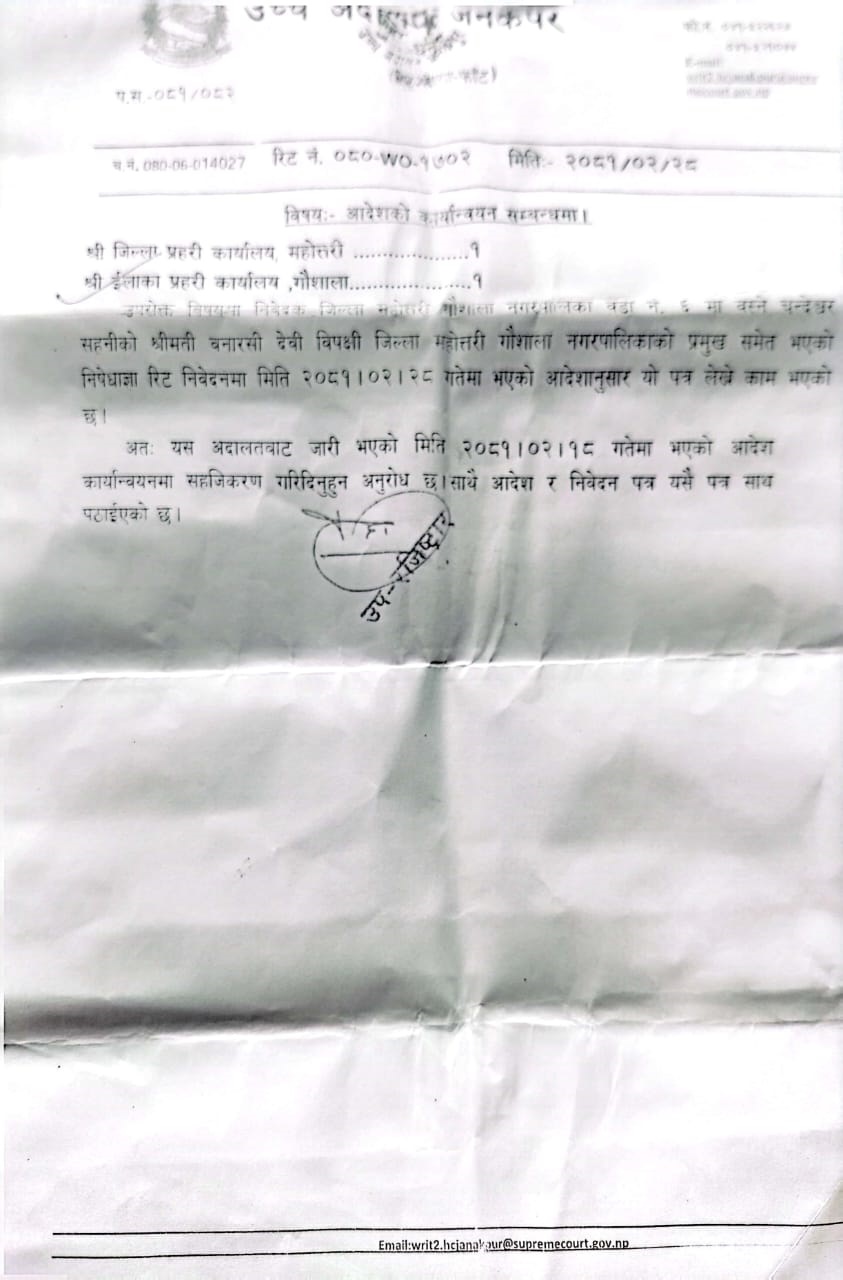 उच्च अदालत जनकपुर
प.स.-०८१/०८२
E-mail:
च नं. 080-06-014027 रिट नं. ०८०-WO-१७०२ मितिः- २०८१/०२/२८
विषयः- आदेशको कार्यान्वयन सम्बन्धमा।
श्री जिल्ला प्रहरी कार्यालय, महोत्तरी ....................१
श्री ईलाका प्रहरी कार्यालय ,गौशाला.....................१
उपरोक्त विषयमा निवेदक जिल्ला महोत्तरी गौशाला नगरपालिका वडा नं. ६ मा बस्ने
सहनीको श्रीमती बनारसी देवी विपक्षी जिल्ला महोत्तरी गौशाला नगरपालिकाको प्रमुख समेत भएको
निषेधाज्ञा रिट निवेदनमा मिति २०८१।०२।२८ गतेमा भएको आदेशानुसार यो पत्र लेखे काम भएको
छ।
अतः यस अदालतबाट जारी भएको मिति २०८१।०२।१८ गतेमा भएको आदेश
कार्यान्वयनमा सहजिकरण गरिदिनुहुन अनुरोध छ।साथै आदेश र निवेदन पत्र यसै पत्र साथ
पठाईएको छ।
उप-रजिष्ट्रार
Email:writ2.hcjanakpur@supremecourt.gov.np